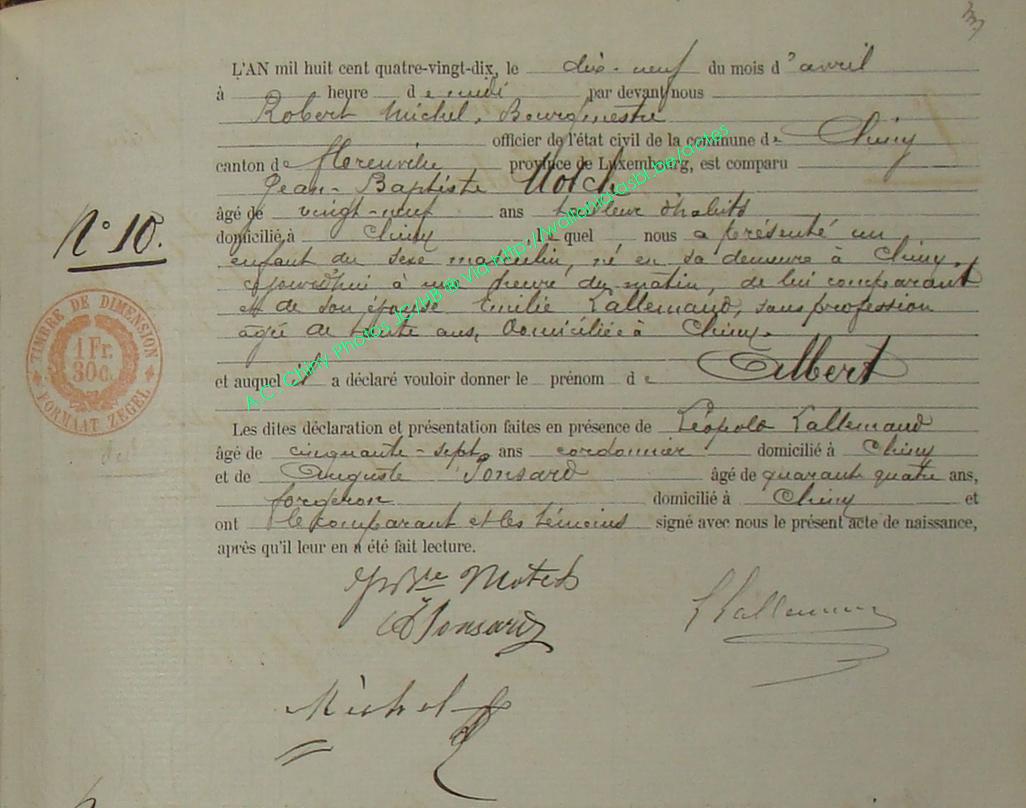 L'AN mil huit cent quatre-vingt-dix, le dix-neuf du mois d'avril
à heure de midi par devant nous
Robert Michel, Bourgmestre
officier de l'état civil de la commune de Chiny
canton de Florenville province de Luxembourg, est comparu
Jean-Baptiste Motch
âgé de vingt-neuf ans tailleur d'habits
N° 10.
domicilié à Chiny lequel nous a présenté un
enfant du sexe masculin, né en sa demeure à Chiny,
aujourd'hui à une heure du matin, de lui comparant
et de son épouse Emilie Lallemand, sans profession
agée de trente ans, domiciliée à Chiny.
TIMBRE DE DIMENSION
1 Fr.
30c.
FORMAAT ZEGEL
et auquel il a déclaré vouloir donner le prénom de Albert
Les dites déclaration et présentation faites en présence de Léopold Lallemand
âgé de cinquante-sept ans cordonnier domicilié à Chiny
et de Auguste Ponsard âgé de quarante quatre ans,
forgeron domicilié à Chiny et
ont le comparant et les témoins signé avec nous le présent acte de naissance,
après qu'il leur en a été fait lecture.
JBte Motch
A Ponsard
L Lallemand
Michel R
A.C. Chiny Photos JC/HB © via http://wallonia-asbl.be/actes